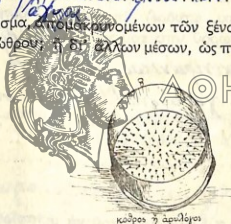 σμα, ἀπομακρυνομένων τῶν ξένο
ώθρου; ἢ δι' ἄλλων μέσων, ὡς π
ΑΘΗ
κωθρος ἢ ἀρυλόγος